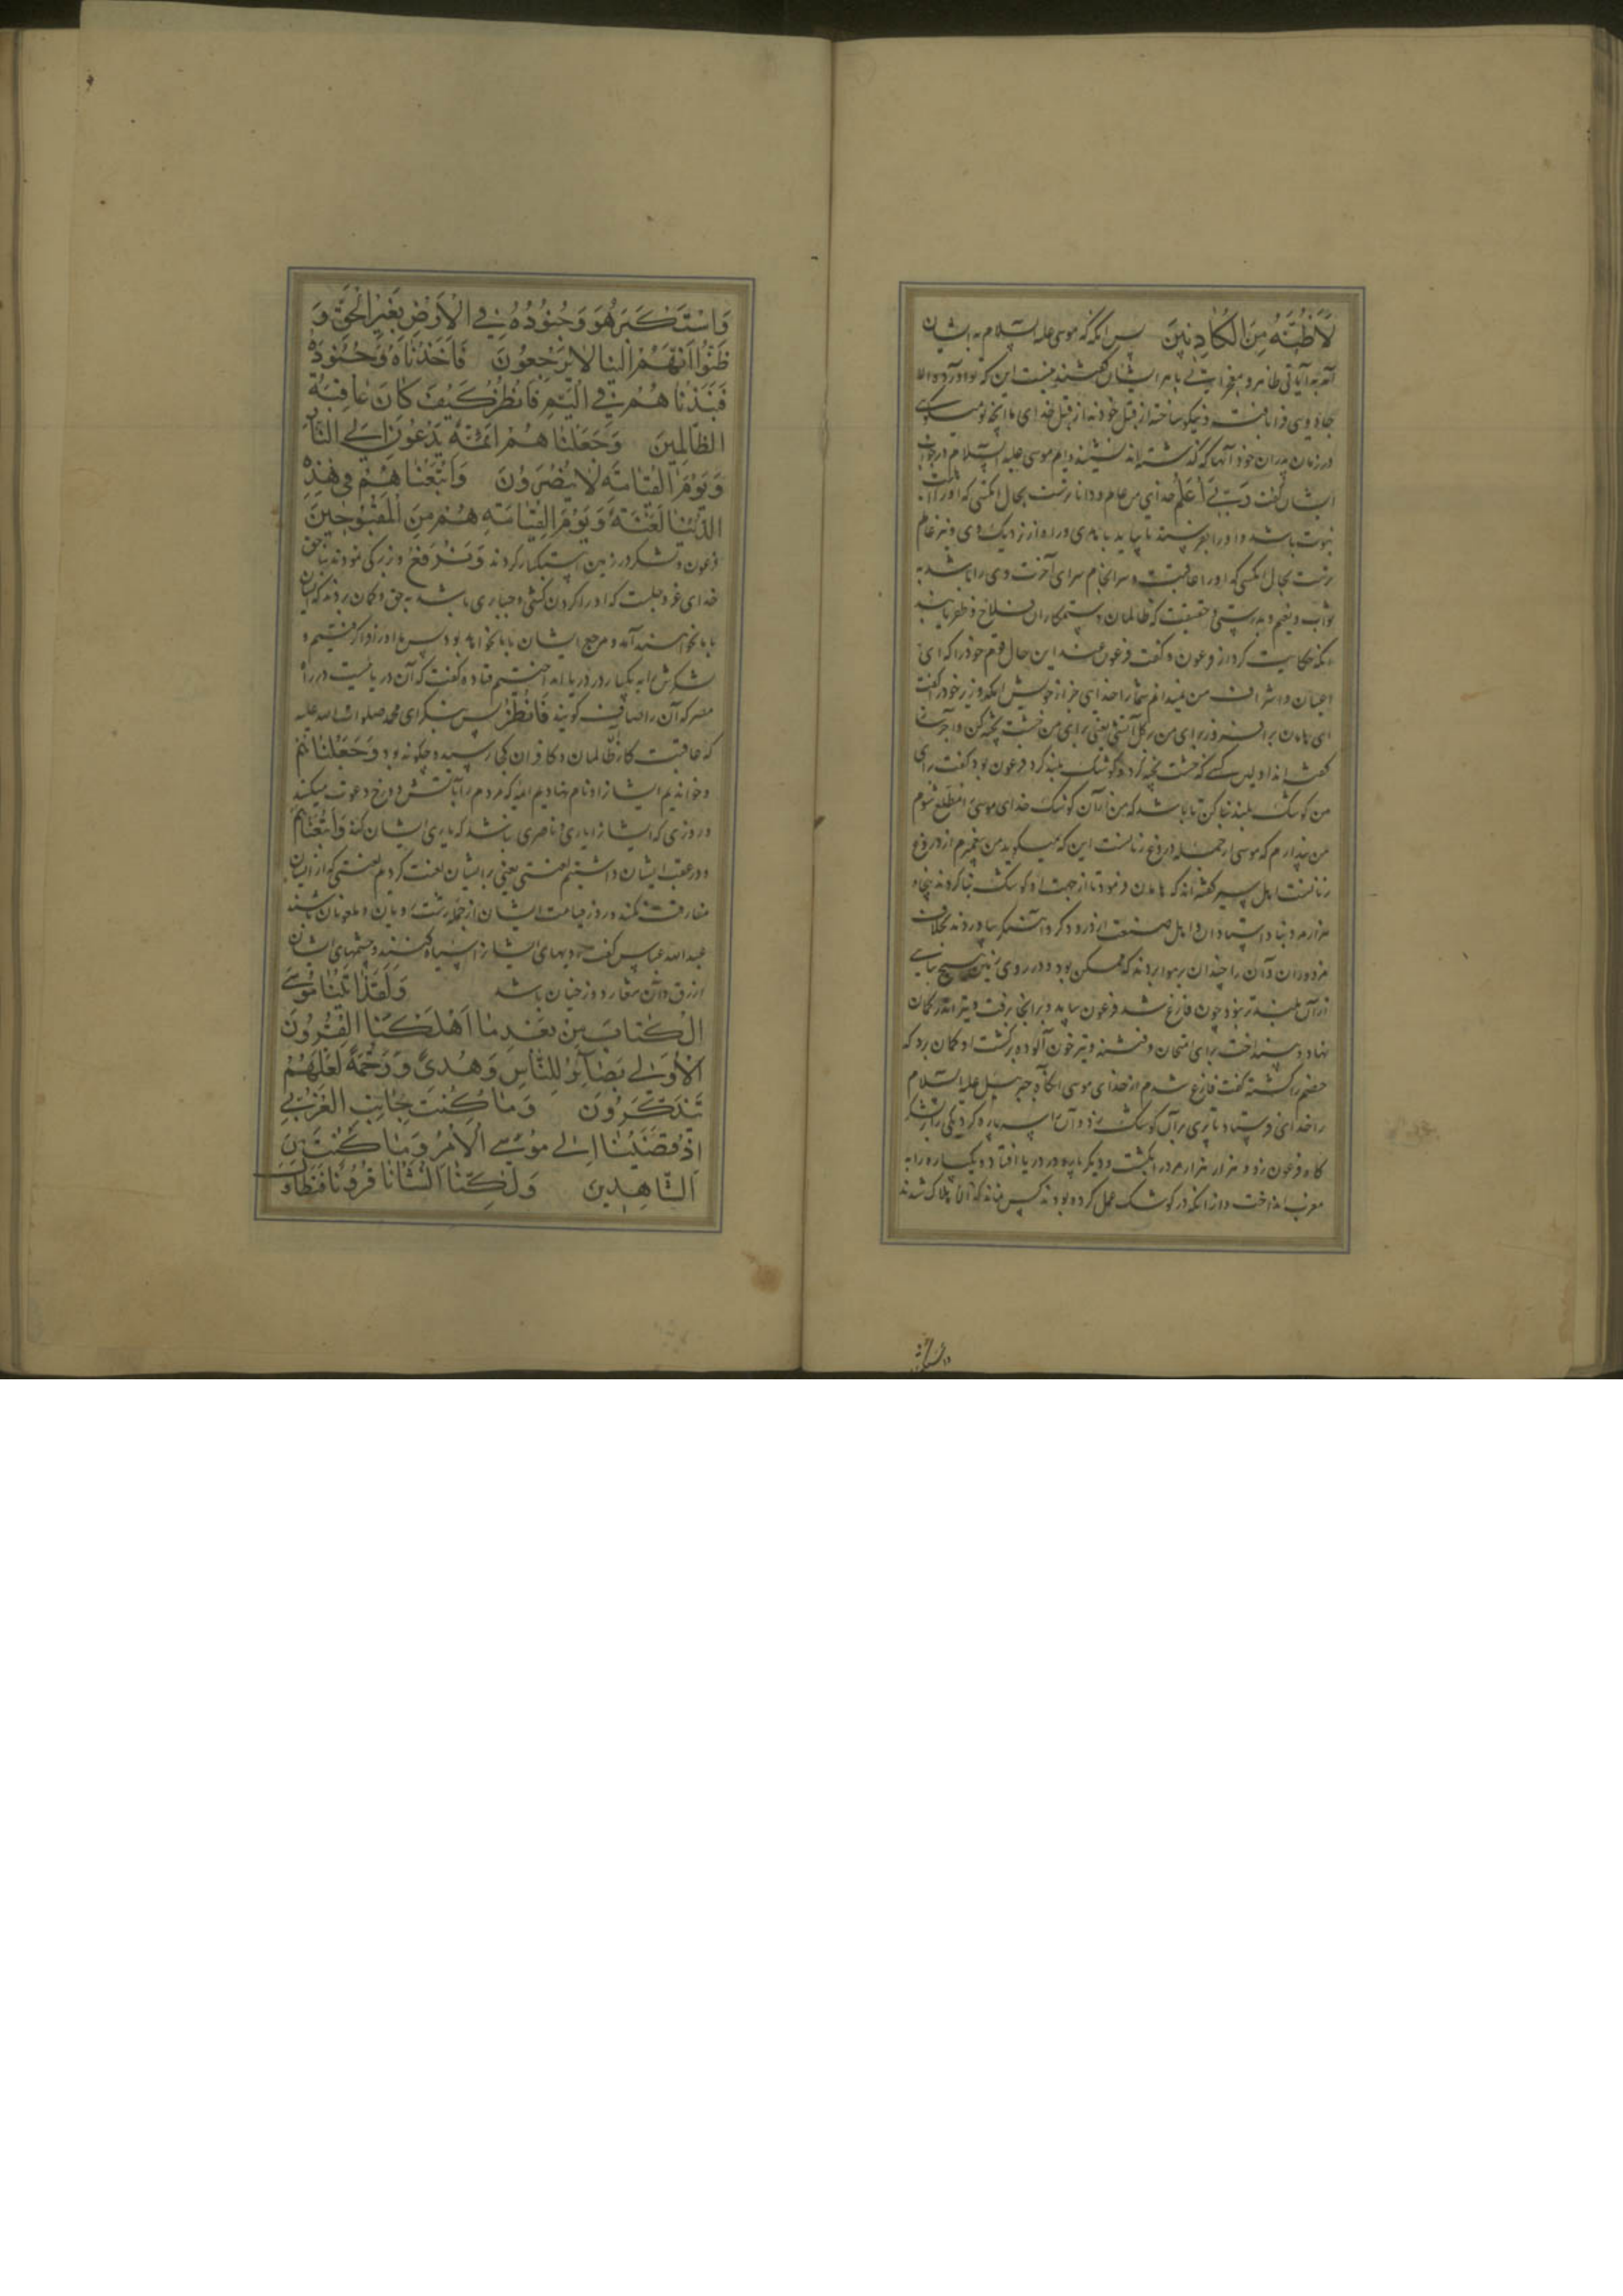 لَأَظُنُّهُ مِنَ الْكَاذِبِينَ پس آنکه که موسی علیه السلام به ایشان
آمد به آیاتی ظاهر و معجزاتی باهر ایشان گفتند نیست این که تو آوردی الا
جادویی فرا بافته و نیکو ساخته از قبل خود نه از قبل خدای ما آنچه تو میگویی
در زمان پدران خود آنها که گذشته‌اند نشنیده‌ایم موسی علیه السلام در جواب
ایشان گفت رَبِّي أَعْلَمُ خدای من عالم و داناترست بحال آنکسی که او را
نبوت باشد و او را بفرستد تا بیاید با راه از نزدیک وی و نیز عالم
ترست بحال آنکسی که او را عاقبت و سرانجام سرای آخرت وی را باشد به
ثواب و نعیم و بدرستی و حقیقت که ظالمان و ستمکاران فلاح و ظفر نیابند
آنگه حکایت کرد از فرعون و گفت فرعون عند این حال قوم خود را که ای
اعیان و اشراف من نمیدانم شما را خدایی جز از خویش آنگه وزیر خود را گفت
ای هامان برافروز برای من بر گل آتشی یعنی برای من خشت پخته کن و آجر
گفته‌اند اول کسی که خشت پخته کرد و کوشک بلند کرد فرعون بود گفت برای
من کوشک بلند بنا کن تا باشد که من از آن کوشک خدای موسی مطلع شوم
من پندارم که موسی از جمله دروغ زنانست این که میگوید من پیغمبرم از دروغ
زنانست اهل سیر گفته‌اند که هامان فرمود تا از جهت او کوشک بنا کردند پنجاه
هزار مرد بنا و استادان و اهل صنعت از درودگر و آهنگر بیاوردند بخلاف
مزدوران و آن را چندان بر هوا بردند که ممکن بود و در روی زمین هیچ بنایی
از آن بلندتر نبود چون فارغ شد فرعون بیامد و بر آنجا برفت و تیر اندر کمان
نهاد و بینداخت برای امتحان و فتنه و تیر خون آلوده برگشت او گمان برد که
خصم را کشته گفت فارغ شدم از خدای موسی آنگاه جبرئیل علیه السلام
را خدای فرستاد تا پری بر آن کوشک زد و آن را سه پاره کرد یکی را بر لشکر
گاه فرعون زد و هزار هزار مرد را بکشت و دیگر پاره در دریا افتاد و یک پاره را به
مغرب انداخت و از آنکه در کوشک عمل کرده بودند کس نماند که نه هلاک شدند
وَاسْتَكْبَرَ هُوَ وَجُنُودُهُ فِي الْأَرْضِ بِغَيْرِ الْحَقِّ وَ
ظَنُّوا أَنَّهُمْ إِلَيْنَا لَا يُرْجَعُونَ فَأَخَذْنَاهُ وَجُنُودَهُ
فَنَبَذْنَاهُمْ فِي الْيَمِّ فَانْظُرْ كَيْفَ كَانَ عَاقِبَةُ
الظَّالِمِينَ وَجَعَلْنَاهُمْ أَئِمَّةً يَدْعُونَ إِلَى النَّارِ
وَيَوْمَ الْقِيَامَةِ لَا يُنْصَرُونَ وَأَتْبَعْنَاهُمْ فِي هَذِهِ
الدُّنْيَا لَعْنَةً وَيَوْمَ الْقِيَامَةِ هُمْ مِنَ الْمَقْبُوحِينَ
فرعون و لشکر در زمین استکبار کردند و ترفع و بزرگی نمودند بناحق
خدای عز و جل است که او را گردن کشی و جباری باشد به حق و گمان بردند که ایشان
با ما نخواهند آمد و مرجع ایشان با ما نخواهد بود پس ما او را فرا گرفتیم و
لشکرش را به یکبار در دریا انداختیم قتاده گفت که آن دریاییست در راه
مصر که آن را اساف گویند فَانْظُرْ پس بنگر ای محمد صلوات الله علیه
که عاقبت کار ظالمان و کافران کجا رسید و چگونه بود وَجَعَلْنَاهُمْ
و خواندیم ایشان را و نام نهادیم ائمه که مردم را بآتش دوزخ دعوت میکنند
و روزی که ایشان را یاری و ناصری نباشد که یاری ایشان کند وَأَتْبَعْنَاهُمْ
و در عقب ایشان داشتیم لعنتی یعنی بر ایشان لعنت کردیم لعنتی که از ایشان
مفارقت نکند و روز قیامت ایشان از جمله زشت رویان و ملعونان باشند
عبدالله عباس گفت رویهای ایشان را سیاه کنند و چشمهای ایشان
ازرق و آن شعار دوزخیان باشد وَلَقَدْ آتَيْنَا مُوسَى
الْكِتَابَ مِنْ بَعْدِ مَا أَهْلَكْنَا الْقُرُونَ
الْأُولَى بَصَائِرَ لِلنَّاسِ وَهُدًى وَرَحْمَةً لَعَلَّهُمْ
يَتَذَكَّرُونَ وَمَا كُنْتَ بِجَانِبِ الْغَرْبِيِّ
إِذْ قَضَيْنَا إِلَى مُوسَى الْأَمْرَ وَمَا كُنْتَ مِنَ
الشَّاهِدِينَ وَلَكِنَّا أَنْشَأْنَا قُرُونًا فَتَطَاوَلَ